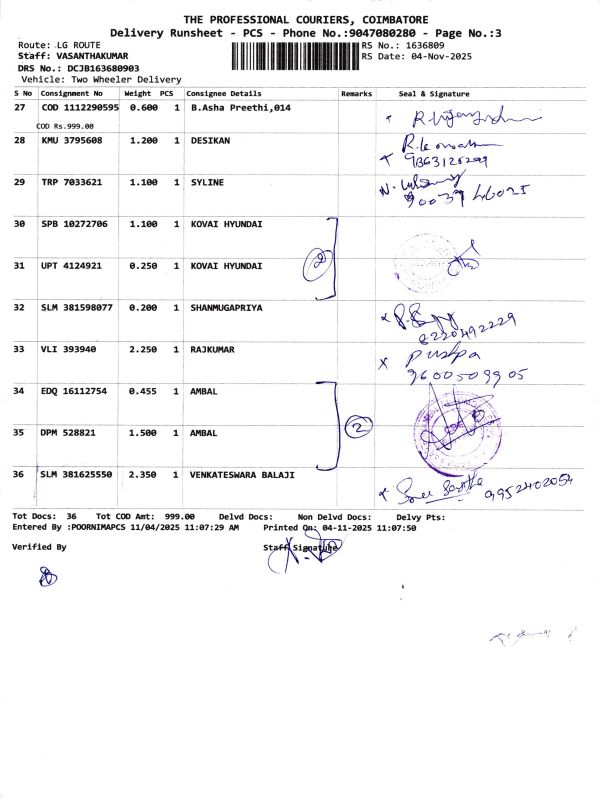 THE PROFESSIONAL COURIERS, COIMBATORE
Delivery Runsheet - PCS - Phone No.:9047080280 - Page No.:3
Route: LG ROUTE
RS No.: 1636809
Staff: VASANTHAKUMAR
RS Date: 04-Nov-2025
DRS No.: DCJB163680903
Vehicle: Two Wheeler Delivery
S No Consignment No Weight PCS Consignee Details Remarks Seal & Signature
27 COD 1112290595 0.600 1 B.Asha Preethi,014
COD Rs.999.00
28 KMU 3795608 1.200 1 DESIKAN
9863126299
29 TRP 7033621 1.100 1 SYLINE
30 SPB 10272706 1.100 1 KOVAI HYUNDAI
2
31 UPT 4124921 0.250 1 KOVAI HYUNDAI
32 SLM 381598077 0.200 1 SHANMUGAPRIYA
8220492229
33 VLI 393940 2.250 1 RAJKUMAR
x Pushpa
9600509905
34 EDQ 16112754 0.455 1 AMBAL
2
35 DPM 528821 1.500 1 AMBAL
36 SLM 381625550 2.350 1 VENKATESWARA BALAJI
9952402054
Tot Docs: 36 Tot COD Amt: 999.00 Delvd Docs: Non Delvd Docs: Delvy Pts:
Entered By :POORNIMAPCS 11/04/2025 11:07:29 AM Printed On: 04-11-2025 11:07:50
Verified By Staff Signature